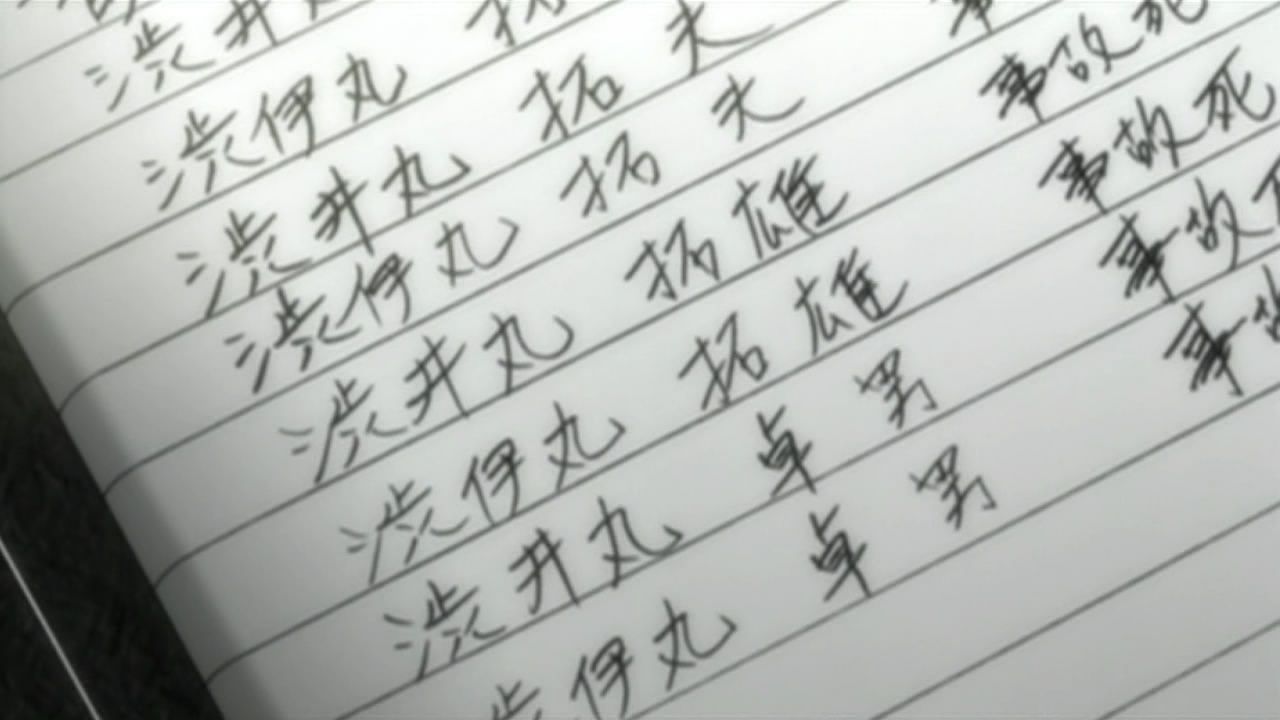 渋井
渋伊丸 拓
渋井丸 拓 夫
渋伊丸 拓 夫 事
渋井丸 拓雄 事故死
渋伊丸 拓雄 事故死
渋井丸 卓男 事故
渋伊丸 卓男 事故